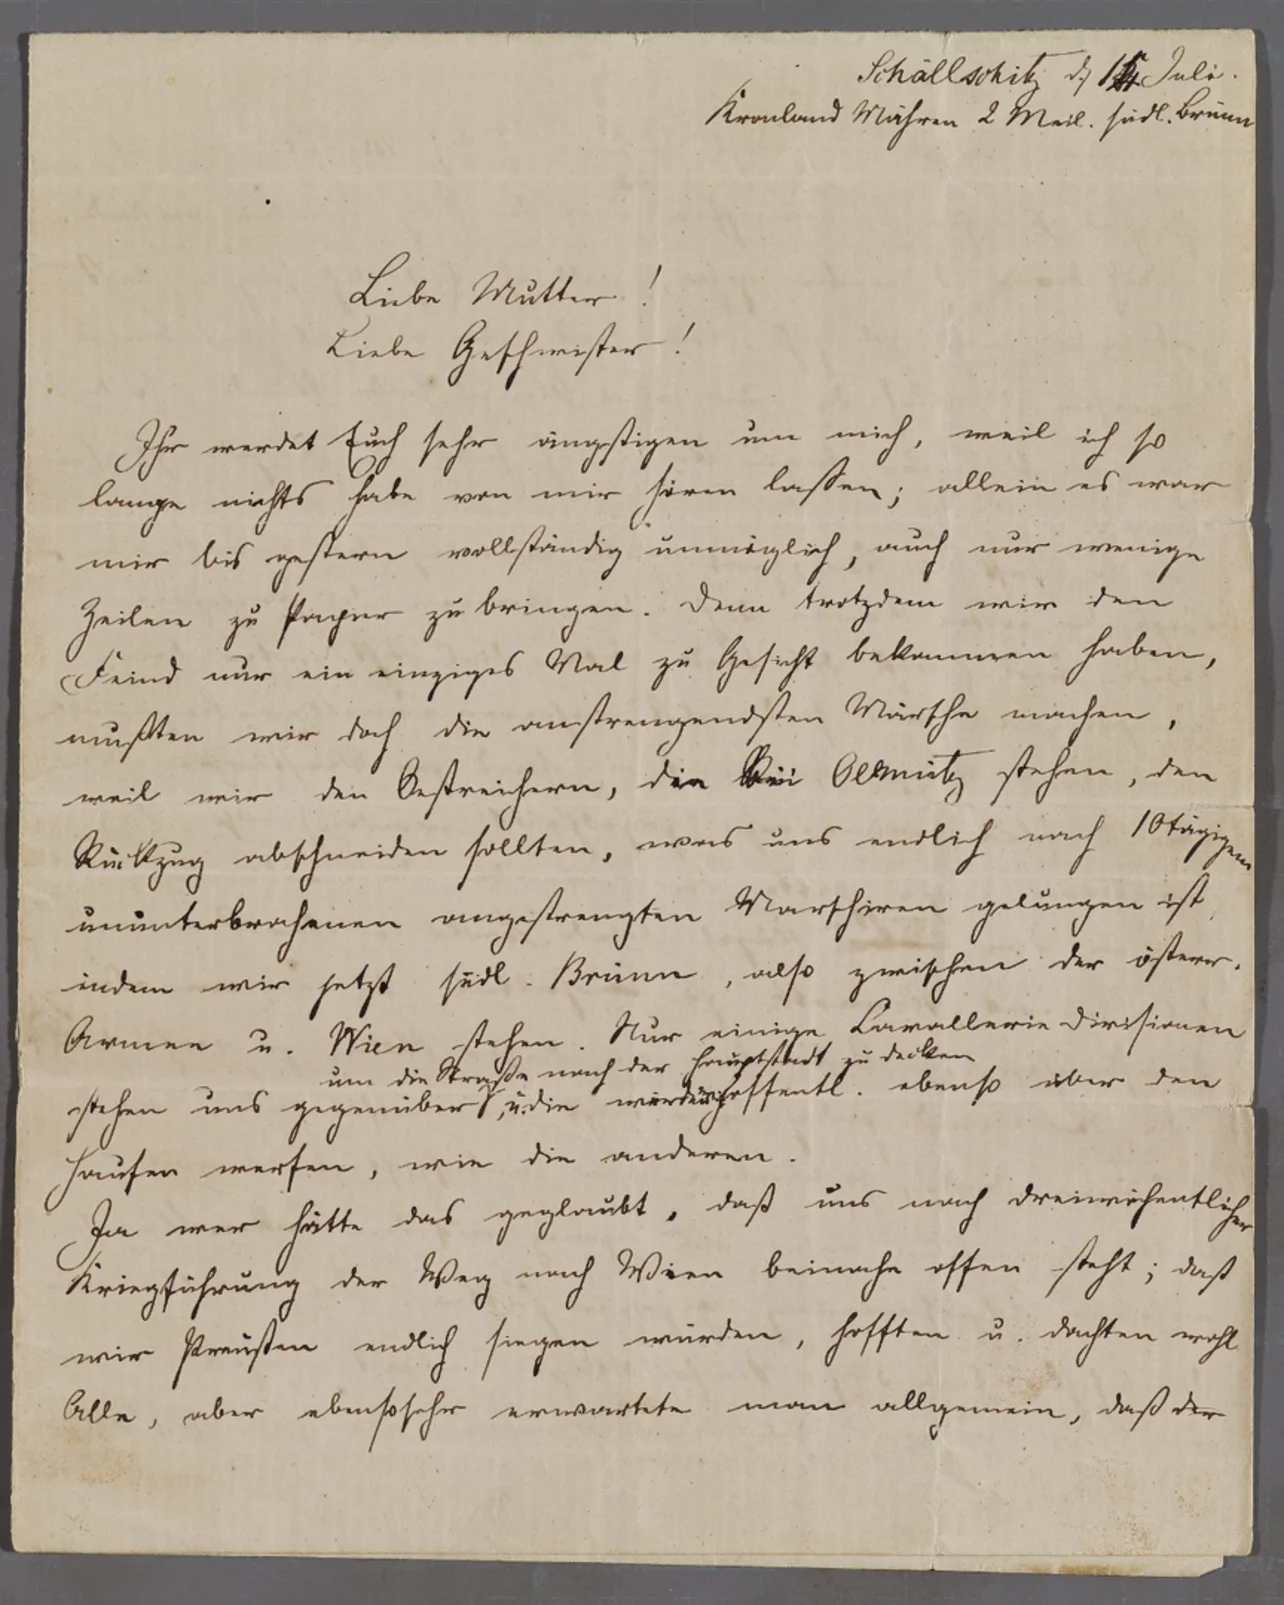 Schällschitz d. 15 Juli.
Kronland Mähren 2 Meil. südl. Brünn
Liebe Mutter!
Liebe Geschwister!
Ihr werdet Euch sehr ängstigen um mich, weil ich so
lange nichts habe von mir hören lassen; allein es war
mir bis gestern vollständig unmöglich, auch nur wenige
Zeilen zu Papier zu bringen. Denn trotzdem wir den
Feind nur ein einziges Mal zu Gesicht bekommen haben,
mußten wir doch die anstrengendsten Märsche machen,
weil wir den Oestreichern, die bei Ollmütz stehen, den
Rückzug abschneiden sollten, was uns endlich nach 10tägigem
ununterbrochenen angestrengten Marschiren gelungen ist,
indem wir jetzt südl. Brünn, also zwischen der österr.
Armee u. Wien stehen. Nur einige Cavallerie Divisionen
um die Straße nach der Hauptstadt zu decken
stehen uns gegenüber, u. die werden hoffentl. ebenso über den
Haufen werfen, wie die anderen.
Ja wer hätte das geglaubt, daß uns nach dreiwöchentlicher
Kriegführung der Weg nach Wien beinahe offen steht; daß
wir Preußen endlich siegen würden, hofften u. dachten wohl
Alle, aber ebensosehr erwartete man allgemein, daß der